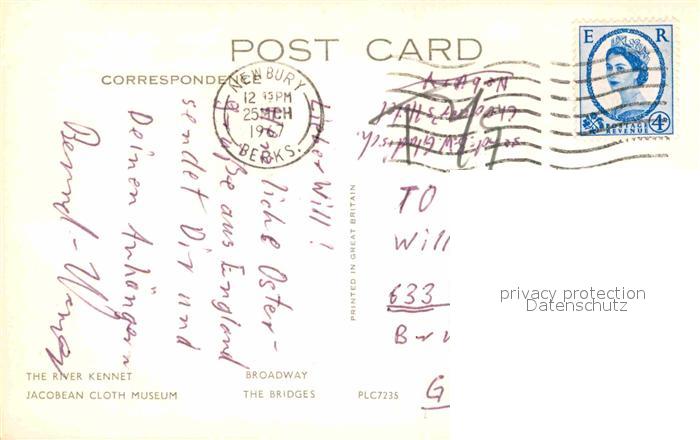 POST CARD
CORRESPONDENCE
NEWBURY
12 45 PM
25 MCH
1967
BERKS.
E R
POSTAGE
REVENUE
4D
Lieber Will!
Herzliche Oster-
grüße aus England
sendet Dir und
Deinen Anhängern
Bernd-
PRINTED IN GREAT BRITAIN
TO
Will
633
G
privacy protection
Datenschutz
THE RIVER KENNET
BROADWAY
JACOBEAN CLOTH MUSEUM
THE BRIDGES
PLC7235